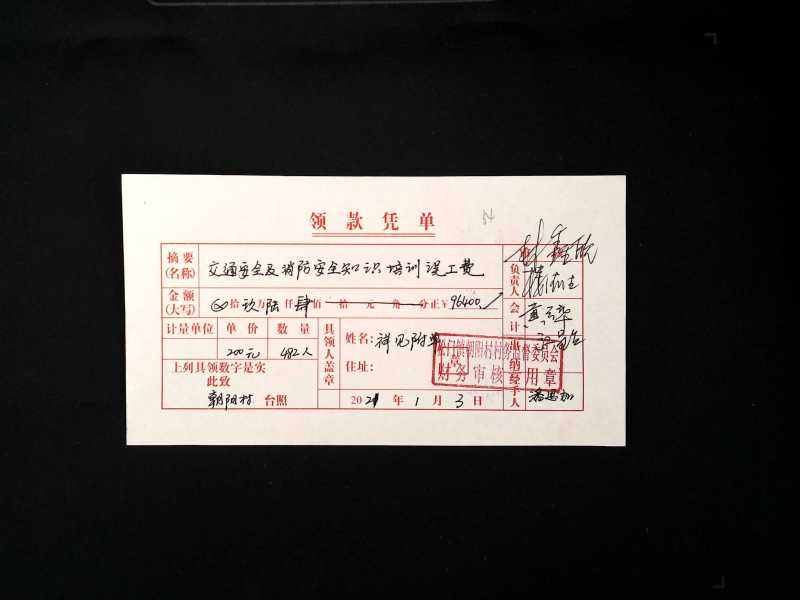 领款凭单
摘要(名称) 交通安全及消防安全知识培训误工费
金额(大写) 拾玖万陆仟肆佰拾元角分正¥96400
计量单位 单价 数量 具领人盖章 姓名:祥见附单
200元 482人 住址:
上列具领数字是实
此致
朝阳村 台照 2021年1月3日
负责人
会计 黄
出纳
经手人
松门镇朝阳村村务监督委员会
财务审核专用章